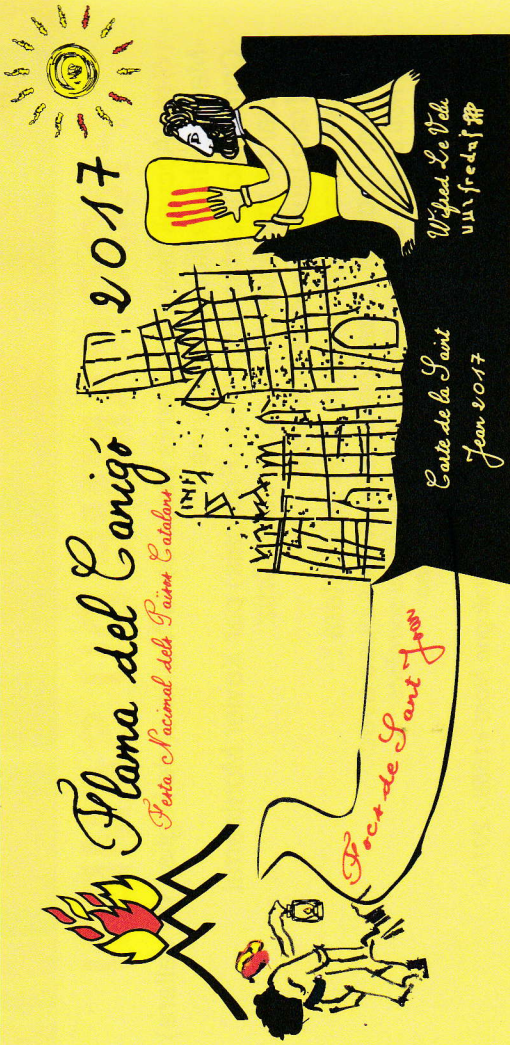 Flama del Canigó 2017
Festa Nacional dels Països Catalans
Focs de Sant Joan
Carte de la Saint
Jean 2017
Wifred Le Velu